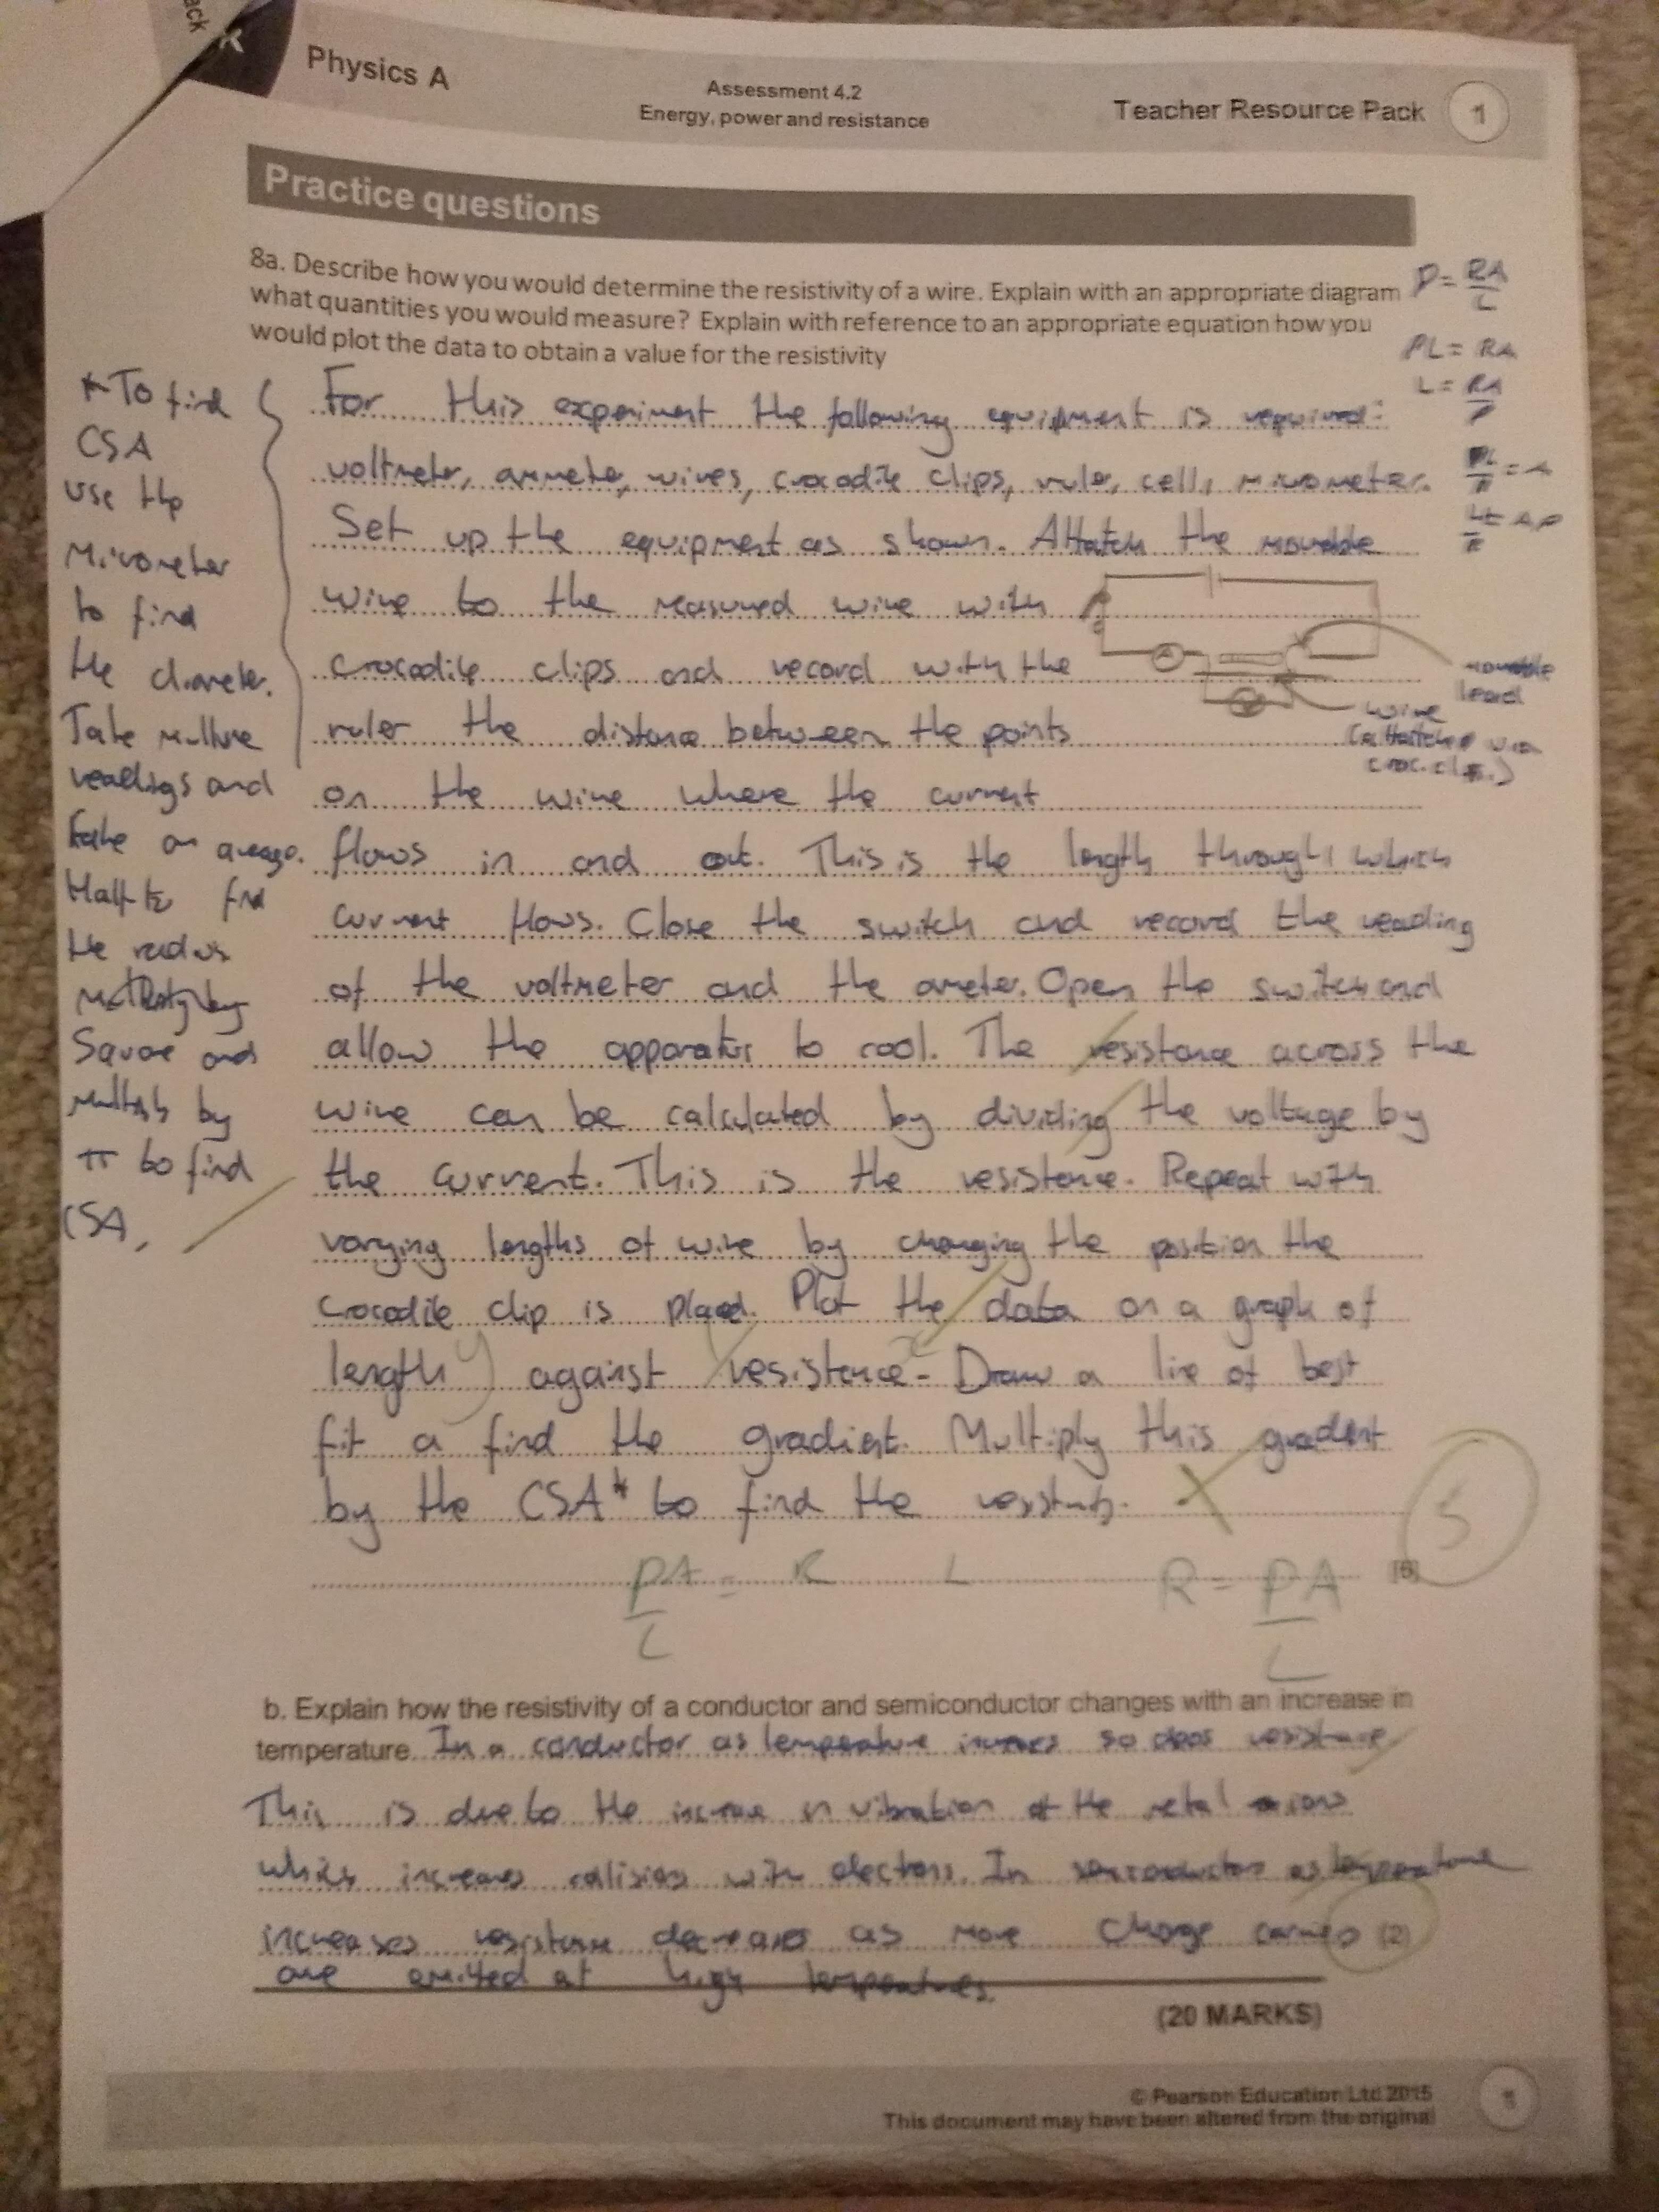 ack
Physics A
Assessment 4.2
Energy, power and resistance
Teacher Resource Pack
1
Practice questions
8a. Describe how you would determine the resistivity of a wire. Explain with an appropriate diagram
what quantities you would measure? Explain with reference to an appropriate equation how you
would plot the data to obtain a value for the resistivity
P = RA/L
PL = RA
L = RA/P
PL/R = A
For this experiment the following equipment is required:
voltmeter, ammeter, wires, crocodile clips, ruler, cell, micrometer.
Set up the equipment as shown. Attatch the movable
wire to the measured wire with
crocodile clips and record with the
ruler the distance between the points
on the wire where the current
flows in and out. This is the length through which
current flows. Close the switch and record the reading
of the voltmeter and the ameter. Open the switch and
allow the apparatus to cool. The resistance across the
wire can be calculated by dividing the voltage by
the current. This is the resistence. Repeat with
varying lengths of wire by changing the position the
crocodile clip is placed. Plot the data on a graph of
length y) against resistence x - Draw a line of best
fit a find the gradient. Multiply this gradient
by the CSA* to find the
A
V
movable
lead
wire
(attatched via
croc.clip.)
*To find
CSA
use the
Micrometer
to find
the diameter.
Take
readings and
take an average.
Half to find
the radius
Square and
by
π to find
CSA,
5
[6]
PA/L = R L
R = PA/L
b. Explain how the resistivity of a conductor and semiconductor changes with an increase in
temperature. In a conductor as temperature increases so does resistance
This is due to the increase in vibration of the metal ions
which increases collisions with electrons. In semiconductor as temperature
increases resistance decreases as more charge carries (2)
are emitted at high temperatures.
(20 MARKS)
© Pearson Education Ltd 2015
This document may have been altered from the original
1